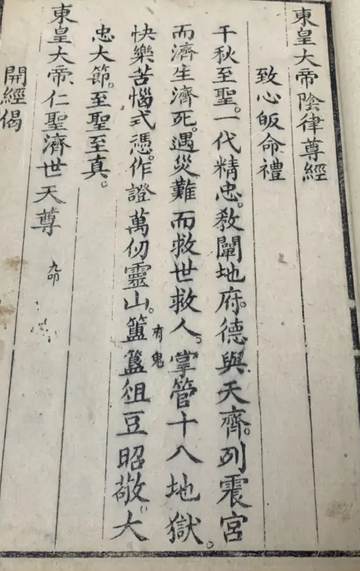 東皇大帝陰律尊經
致心皈命禮
千秋至聖。一代精忠。敎闡地府。德與天齊。列震宮
而濟生濟死。遇災難而救世救人。掌管十八地獄。
有鬼
快樂苦惱式憑。作證萬仞靈山。簠簋俎豆昭敬。大
忠大節。至聖至真。
東皇大帝仁聖濟世天尊
九叩
開經偈